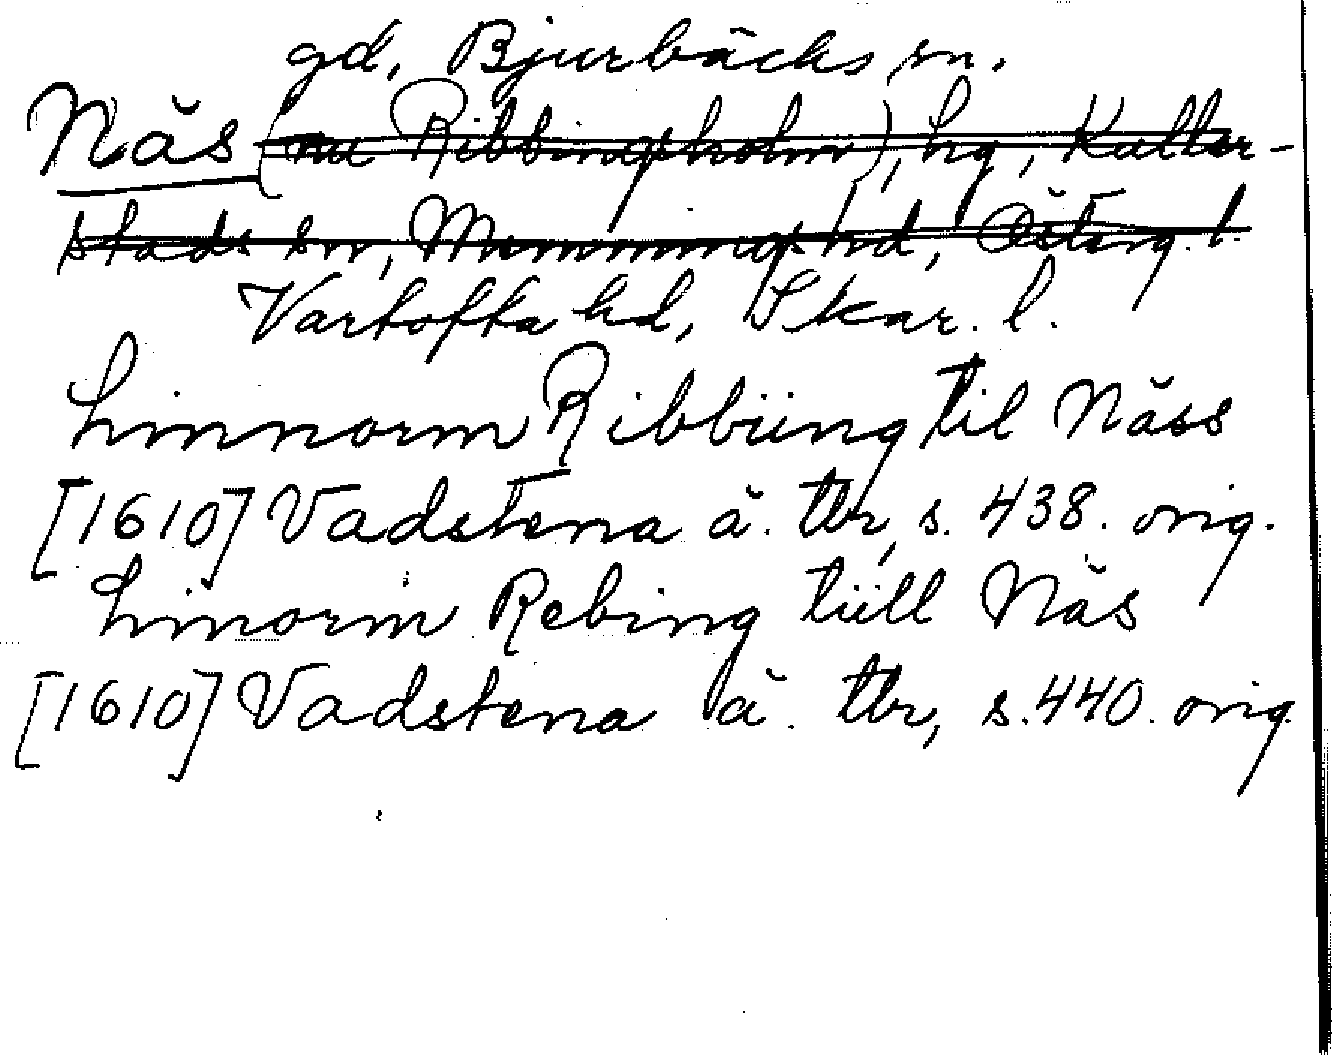 gd, Bjurbäcks sn.
Näs (nu Ribbingsholm), hg, Kuller-
stads sn, Memmings hd, Österg. l.
Vartofta hd, Skar. l.
Linnorm Ribbüng til Näss
[1610] Vadstena ä. tbr, s. 438. orig.
Linorm Rebing tüll Näs
[1610] Vadstena ä. tbr, s. 440. orig